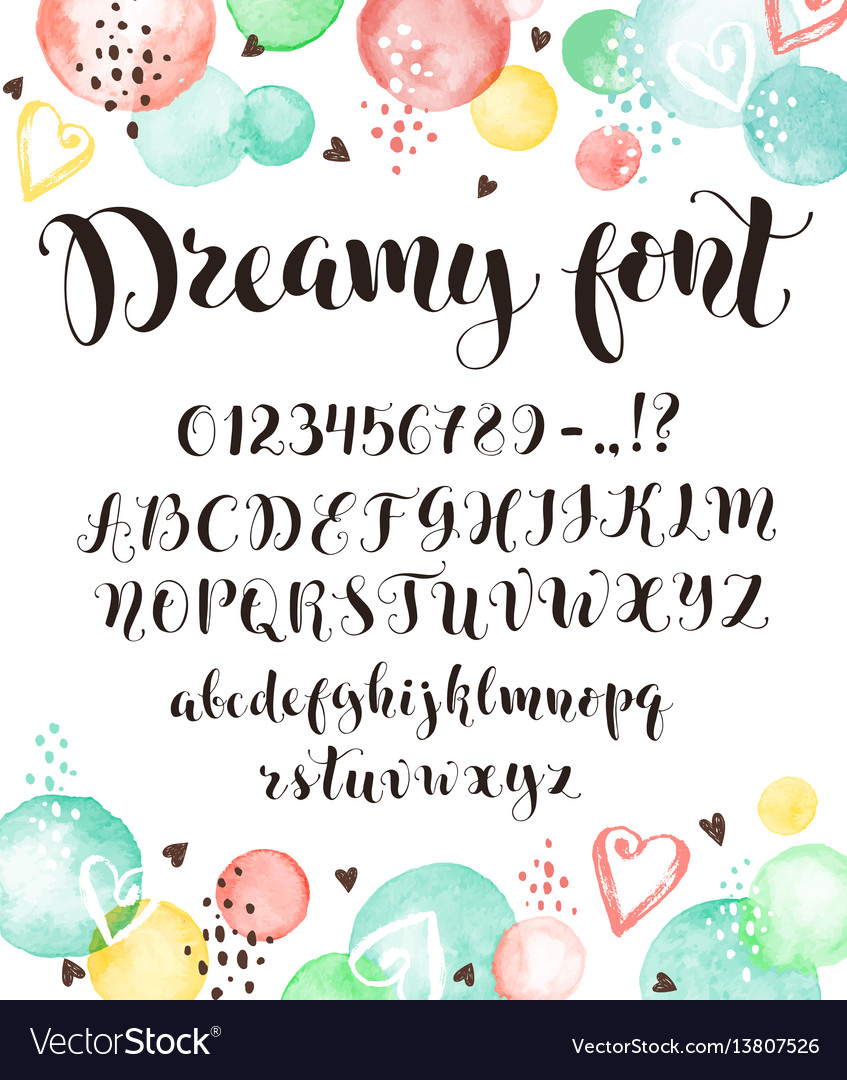 Dreamy font
0123456789-.,!?
ABCDEFGHIJKLM
NOPQRSTUVWXYZ
abcdefghijklmnopq
rstuvwxyz
VectorStock® VectorStock.com/13807526